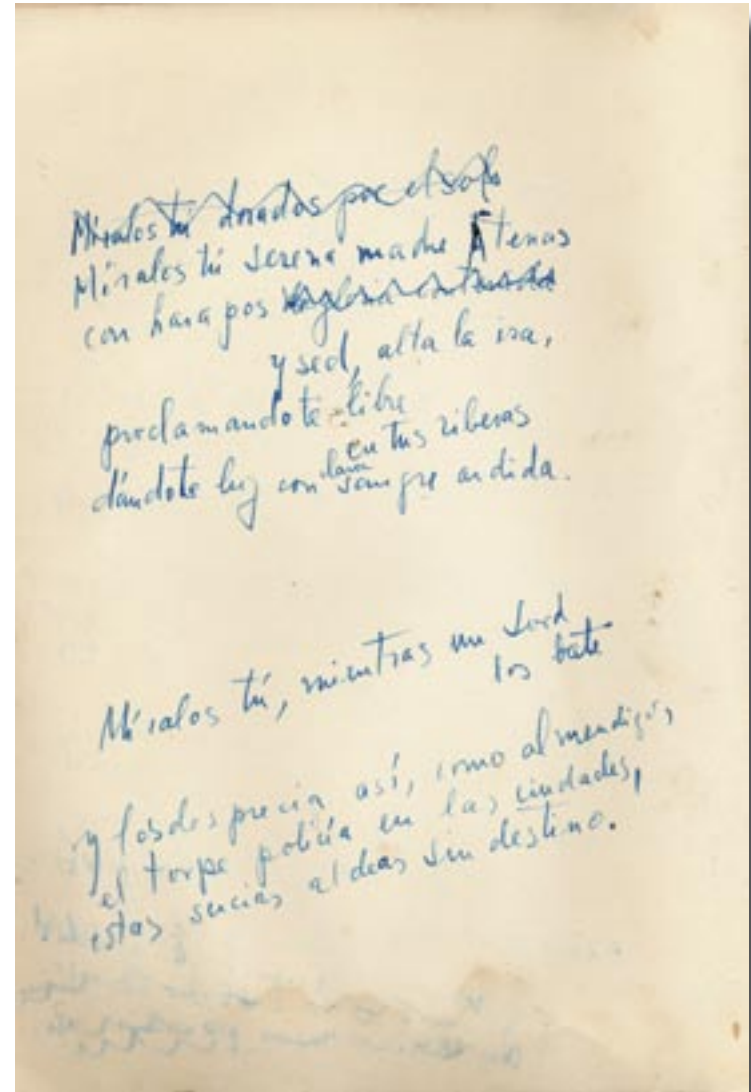 Míralos tú dorados por el sol
Míralos tú serena madre Atenas
con harapos
y sed, alta la ira,
proclamandote libre
en tus riberas
dándote luz con clara sangre ardida.
Míralos tú, mientras un Lord
los bate
y los desprecia así, como al mendigo,
el torpe policía en las ciudades,
estas sucias aldeas sin destino.